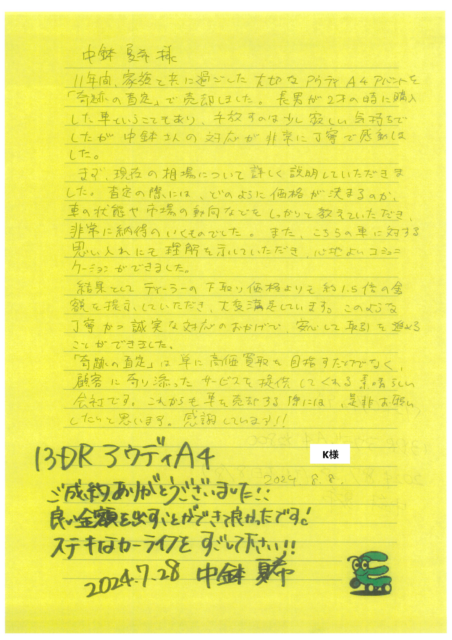 中鉢 夏希 様
11年間、家族と共に過ごした大切なアウディA4アバントを
「奇跡の査定」で売却しました。長男が2才の時に購入
した車ということもあり、手放すのは少し寂しい気持ちで
したが中鉢さんの対応が非常に丁寧で感動しま
した。
まず、現在の相場について詳しく説明していただきま
した。査定の際には、どのように価格が決まるのか、
車の状態や市場の動向などをしっかりと教えていただき、
非常に納得のいくものでした。また、こちらの車に対する
思い入れにも理解を示していただき、心地よいコミュニ
ケーションができました。
結果としてディーラーの下取り価格よりも約1.5倍の金
額を提示していただき、大変満足しています。このような
丁寧かつ誠実な対応のおかげで、安心して取引を進める
ことができました。
「奇跡の査定」は単に高価買取を目指すだけでなく、
顧客に寄り添ったサービスを提供してくれる素晴らしい
会社です。これからも車を売却する際には、是非お願い
したいと思います。感謝しています!!
K様
2024 8.8.
13DR アウディA4
ご成約ありがとうございました!!
良い金額を出すことができて良かったです!
ステキなカーライフをすごして下さい!!
2024.7.28 中鉢 夏希